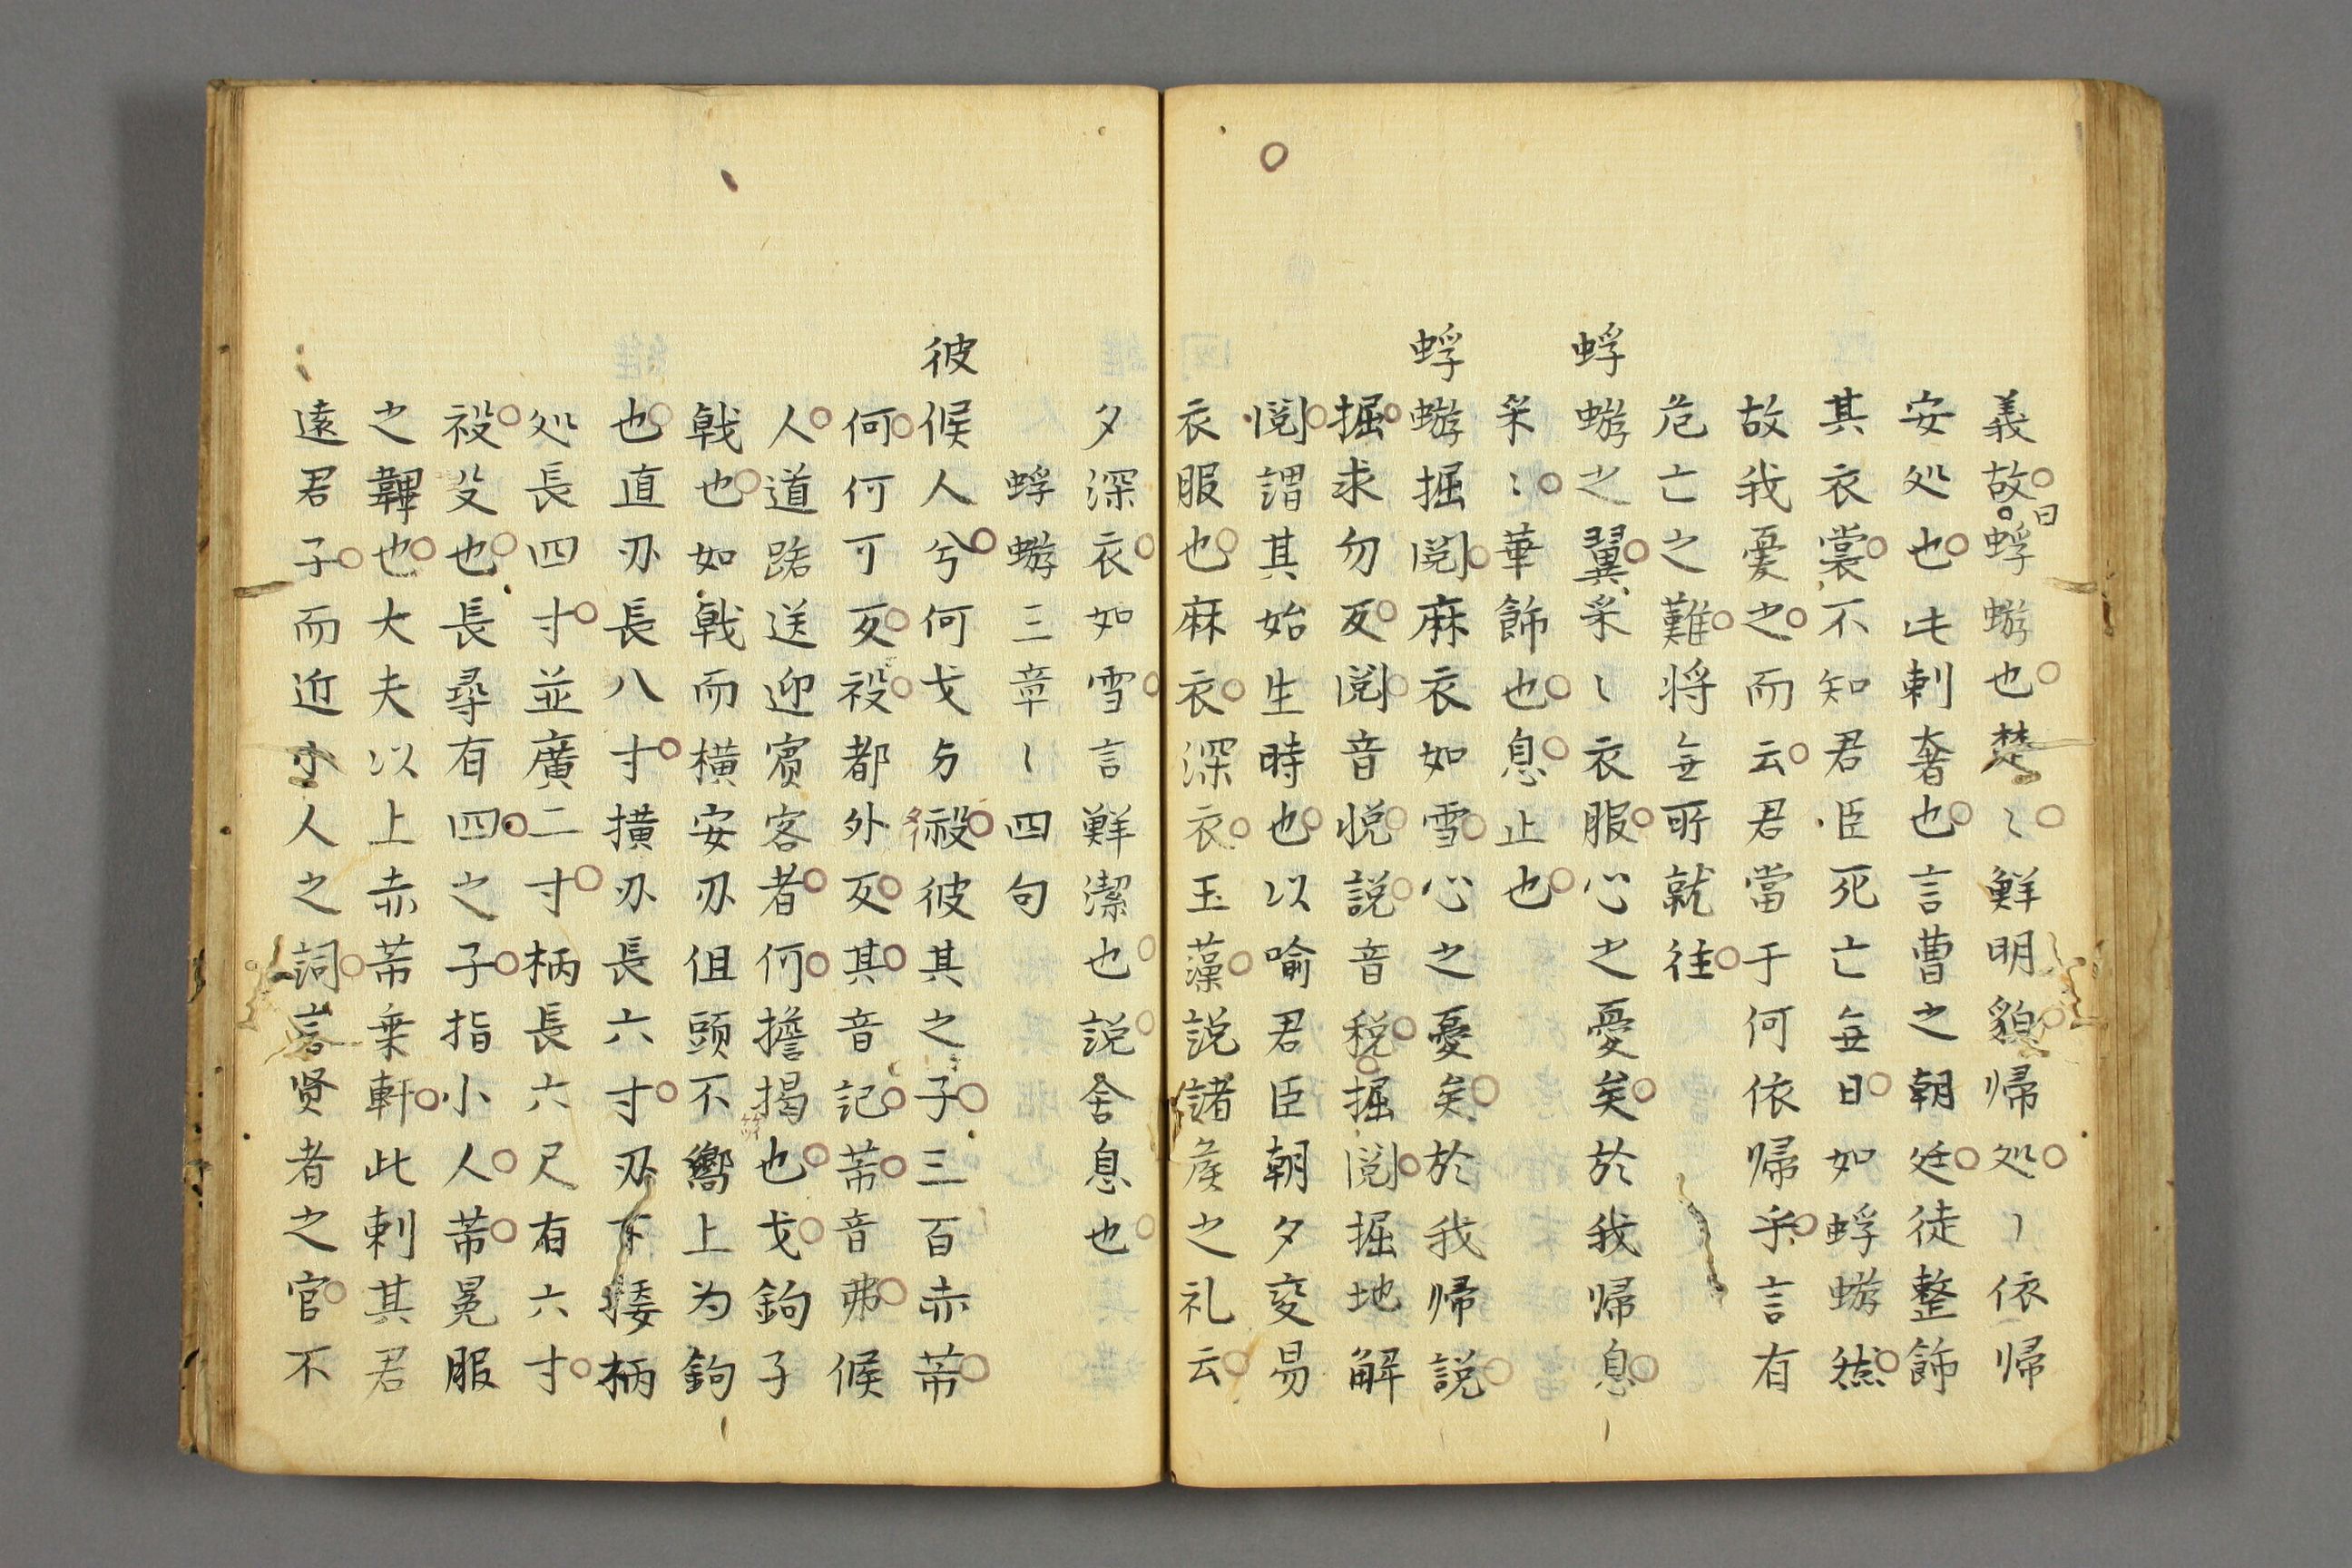 義故曰蜉蝣也楚〻鮮明貌帰処〻依帰
安処也此刺奢也言曹之朝廷徒整飾
其衣裳不知君臣死亡無日如蜉蝣然
故我憂之而云君當于何依帰乎言有
危亡之難将無所就往
蜉蝣之翼采〻衣服心之憂矣於我帰息
采〻華飾也息止也
蜉蝣掘閲麻衣如雪心之憂矣於我帰説
掘求勿反閲音悦説音税掘閲掘地解
閲謂其始生時也以喻君臣朝夕変易
衣服也麻衣深衣玉藻説諸侯之礼云
夕深衣如雪言鮮潔也説舎息也
蜉蝣三章〻四句
彼候人兮何戈与祋彼其之子三百赤芾
何何可反祋都外反其音記芾音弗候
人道路送迎賓客者何擔揭也戈鉤子
戟也如戟而横安刃但頭不嚮上为鉤
也直刃長八寸横刃長六寸刃下接柄
処長四寸並廣二寸柄長六尺有六寸
祋殳也長尋有四之子指小人芾冕服
之韠也大夫以上赤芾乗軒此刺其君
遠君子而近小人之詞言賢者之官不